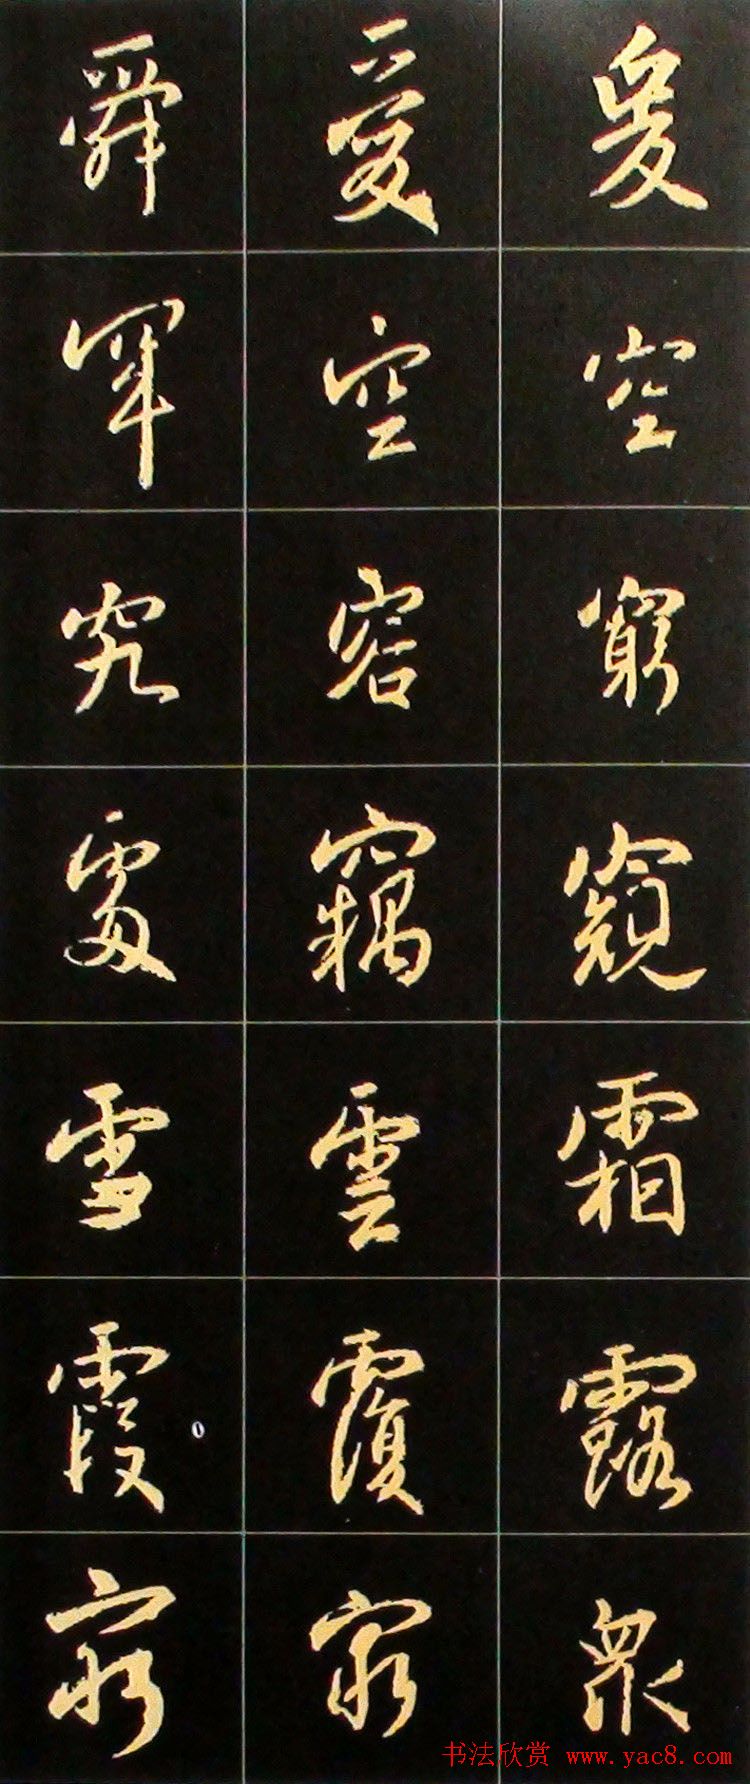 爰空窮窺霜露眾
受空容竊雲覆
舜罕究處雪霞
书法欣赏 www.yac8.com